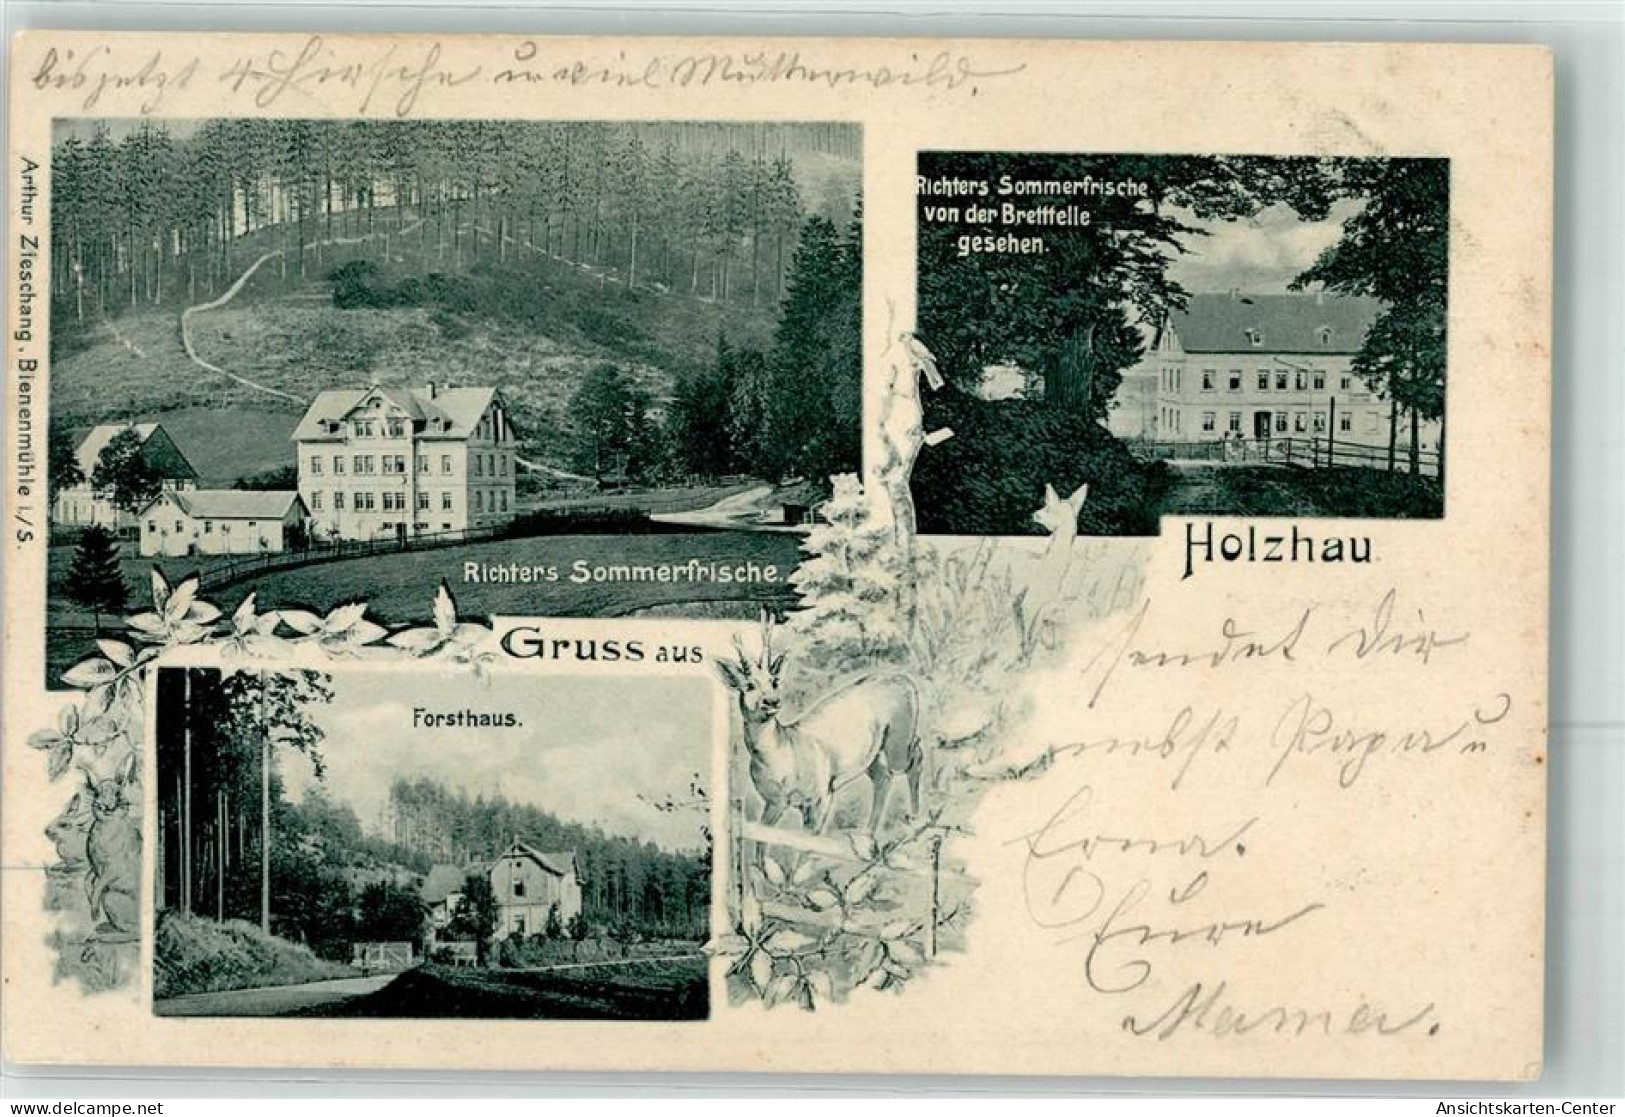 bis jetzt 4 Hirsche u viel Mutterwild.
Arthur Zieschang, Bienenmühle i./S.
Richters Sommerfrische
von der Brettfelle
gesehen.
Richters Sommerfrische.
Holzhau.
Gruss aus
Forsthaus.
sendet Dir
nebst Papa u
Erna.
Eure
Mama.
www.delcampe.net
Ansichtskarten-Center